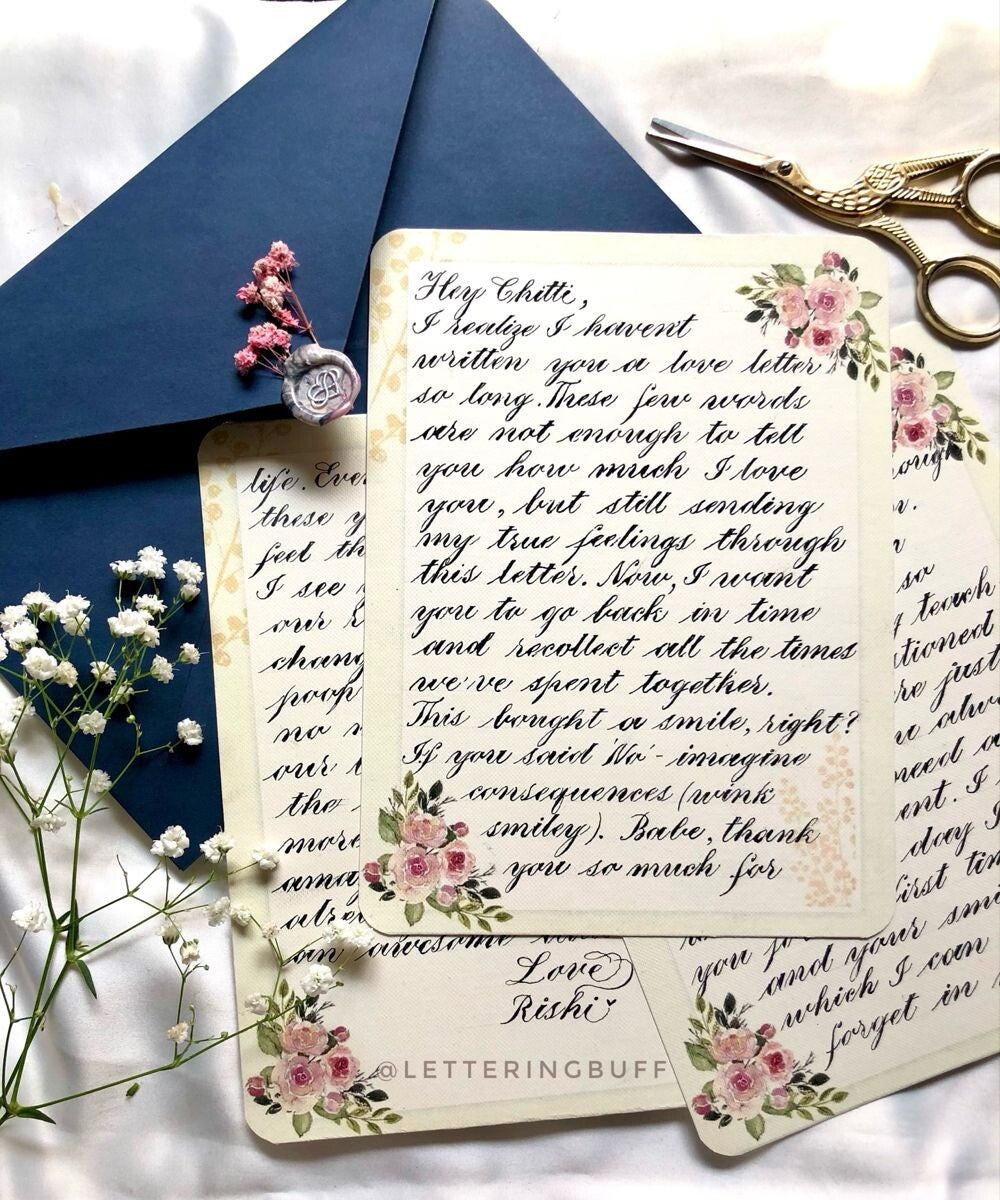 Hey Chitti,
I realize I havent
written you a love letter
so long. These few words
are not enough to tell
you how much I love
you, but still sending
my true feelings through
this letter. Now, I want
you to go back in time
and recollect all the times
we've spent together.
This bought a smile, right?
If you said 'No' - imagine
consequences (wink
smiley). Babe, thank
you so much for
life. Ever
these y
feel th
I see
our
chang
poop
no
our
the
more
amaz
alrea
an awesome
Love
Rishi
so
teach
tioned
re just
u alwa
need a
ent. I
day I
first tim
you
and your smi
which I can
forget in
@LETTERINGBUFF